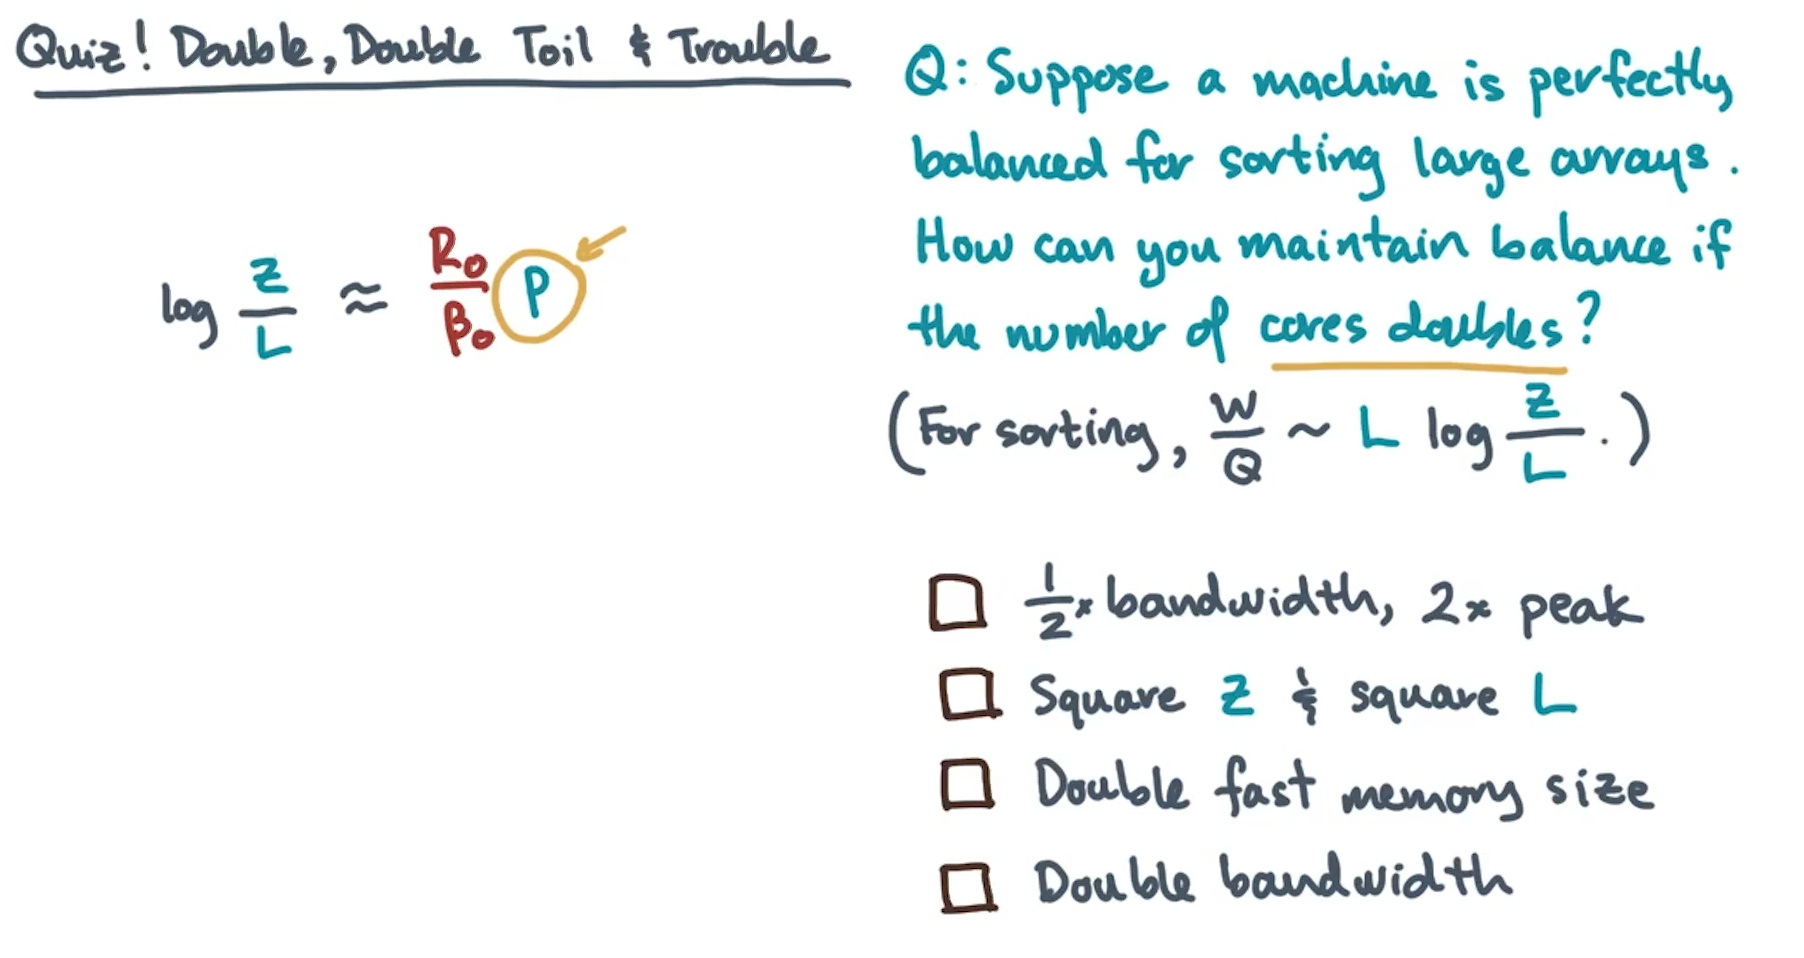 Quiz! Double, Double Toil & Trouble
log Z/L ≈ R₀/β₀ P
Q: Suppose a machine is perfectly
balanced for sorting large arrays.
How can you maintain balance if
the number of cores doubles?
(For sorting, W/Q ~ L log Z/L.)
☐ 1/2x bandwidth, 2x peak
☐ Square Z & square L
☐ Double fast memory size
☐ Double bandwidth